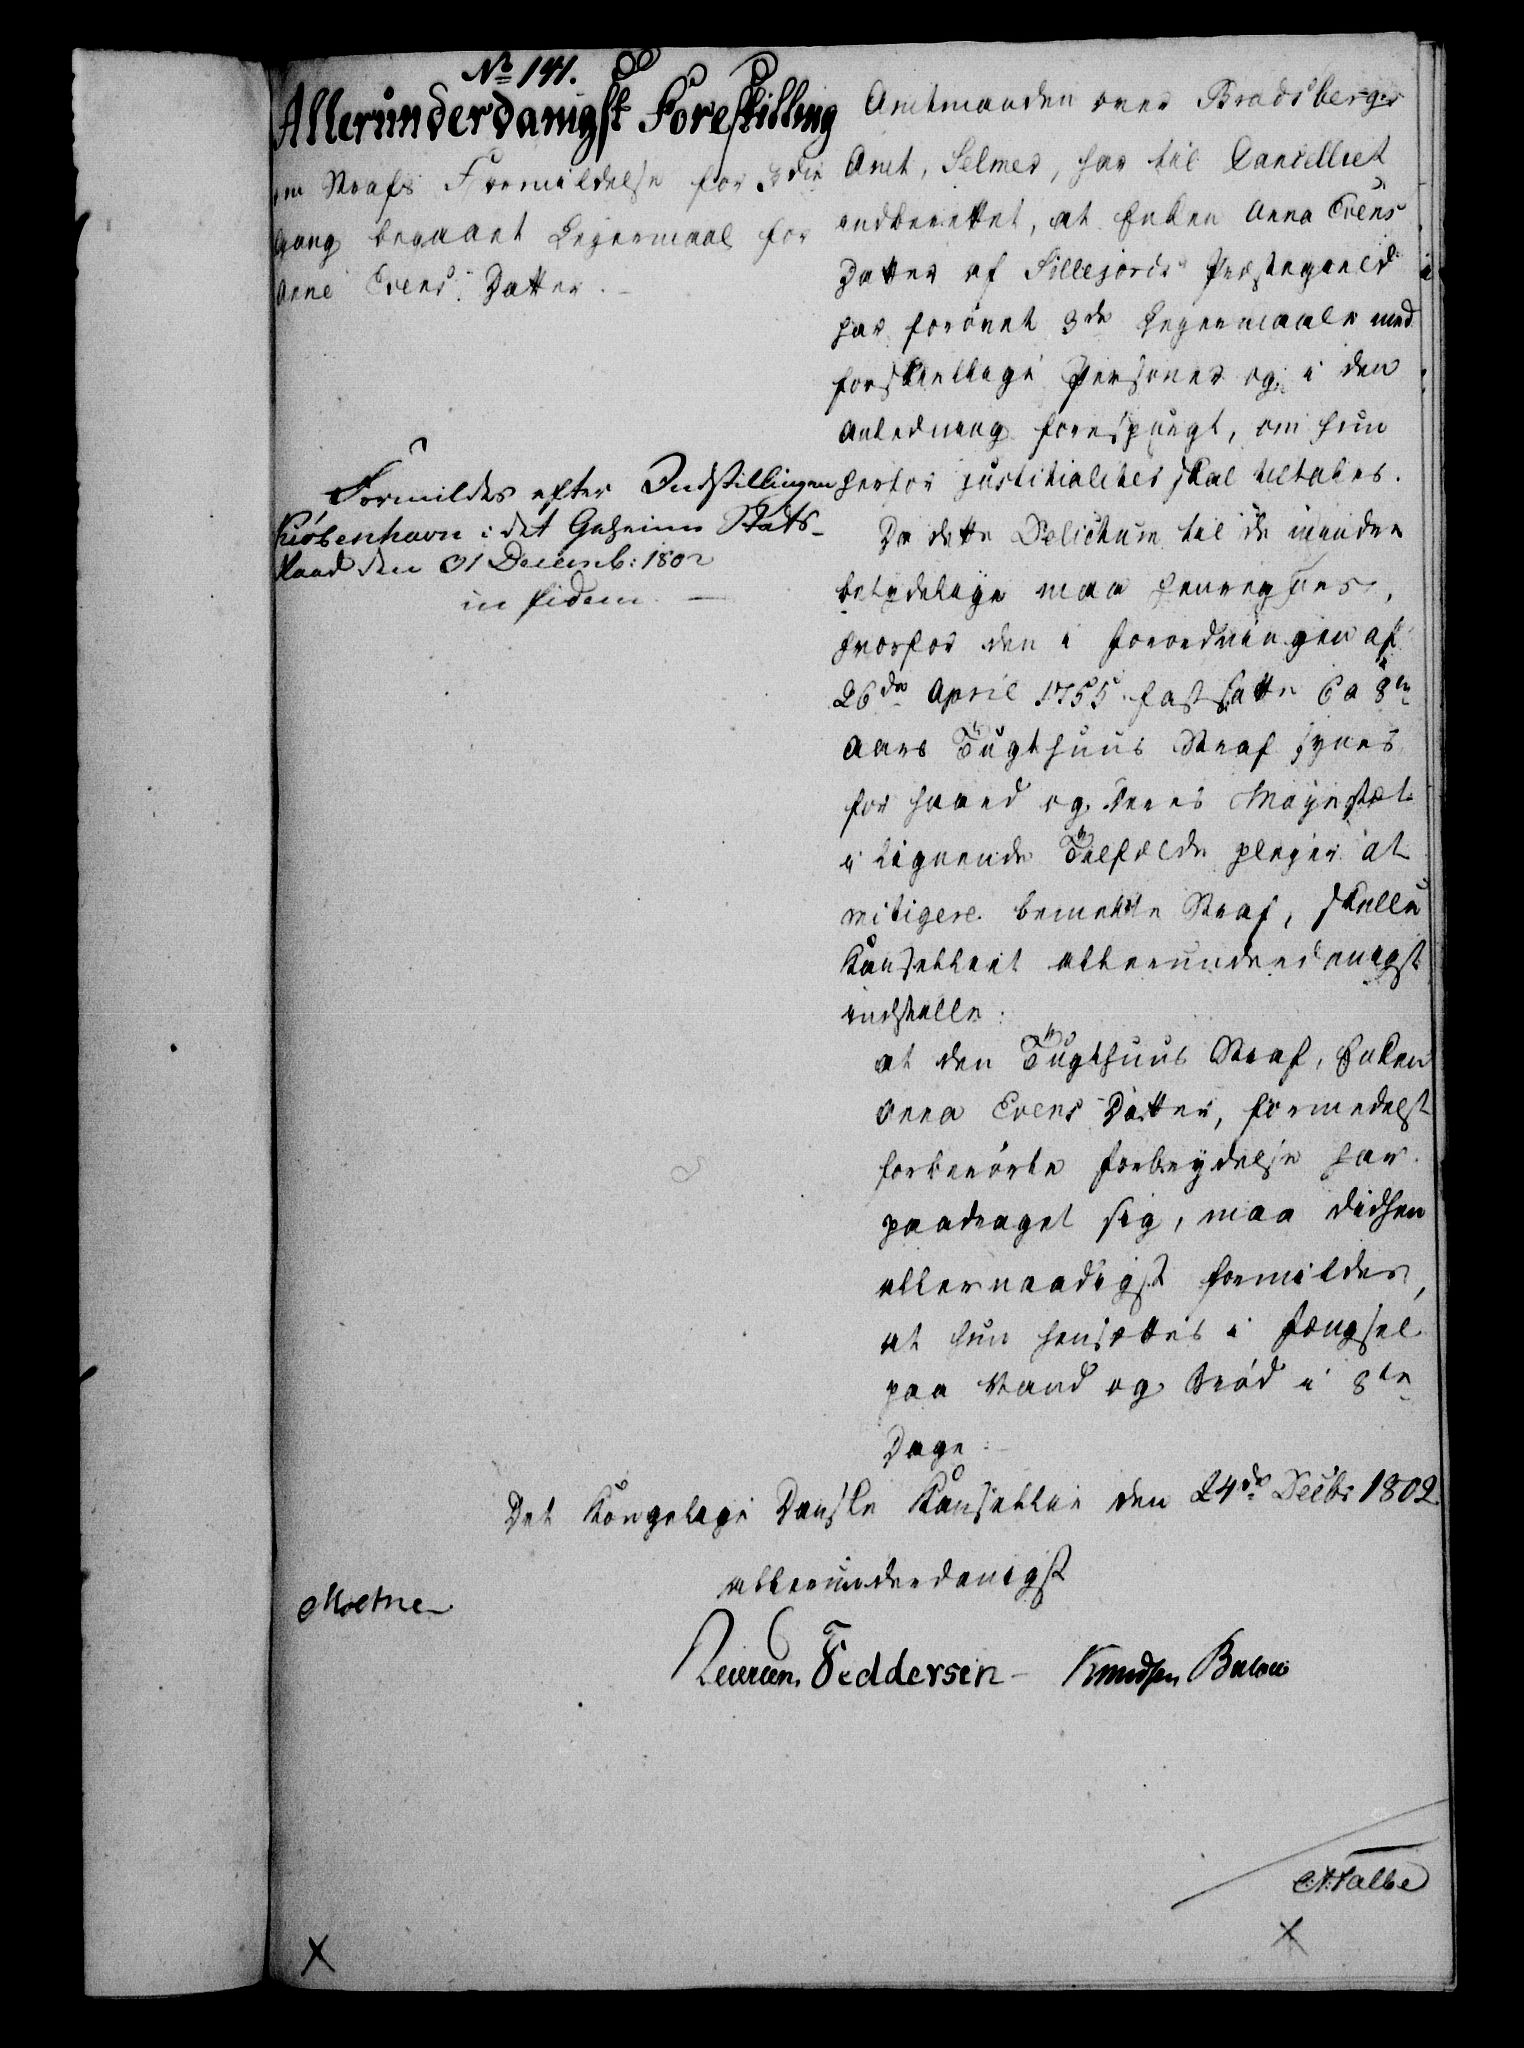 No 141.
Allerunderdanigst Forestilling
om Strafs Formildelse for 3die
Gang begaaet Leiermaal for
Anne Evens Datter.
Formildes efter Indstillingen
Kiøbenhavn i det Geheime Stats-
Raad den 31 Decemb: 1802
in fidem
Amtmanden over Bradsbergs
Amt, Selmer, har til Cancelliet
indberettet, at Enken Anna Evens
Datter af Sillejords Præstegield
har forøvet 3de Leiermaale med
forskiellige Personer og i den
Anledning forespurgt, om hun
herfor justitialiter skal tiltales.
Da dette Delictum til de mindre
betydelige maa henregnes,
hvorfor den i Forordningen af
26de April 1755 fastsatte 6 a 8te
Aars Tugthuus Straf synes
for haard og Deres Majestæt
i lignende Tilfælde pleier at
mitigere bemeldte Straf, skulle
Kanselliet allerunderdanigst
indstille:
at den Tugthuus Straf, Enken
Anna Evens Datter, formedelst
forberørte Forbrydelse har
paadraget sig, maa didhen
allernaadigst formildes,
at hun hensættes i Fængsel
paa Vand og Brød i 8te
Dage.
Det Kongelige Danske Kansellie den 24de Decbr 1802
allerunderdanigst
Moltne
Feddersen Knudsen Bulow